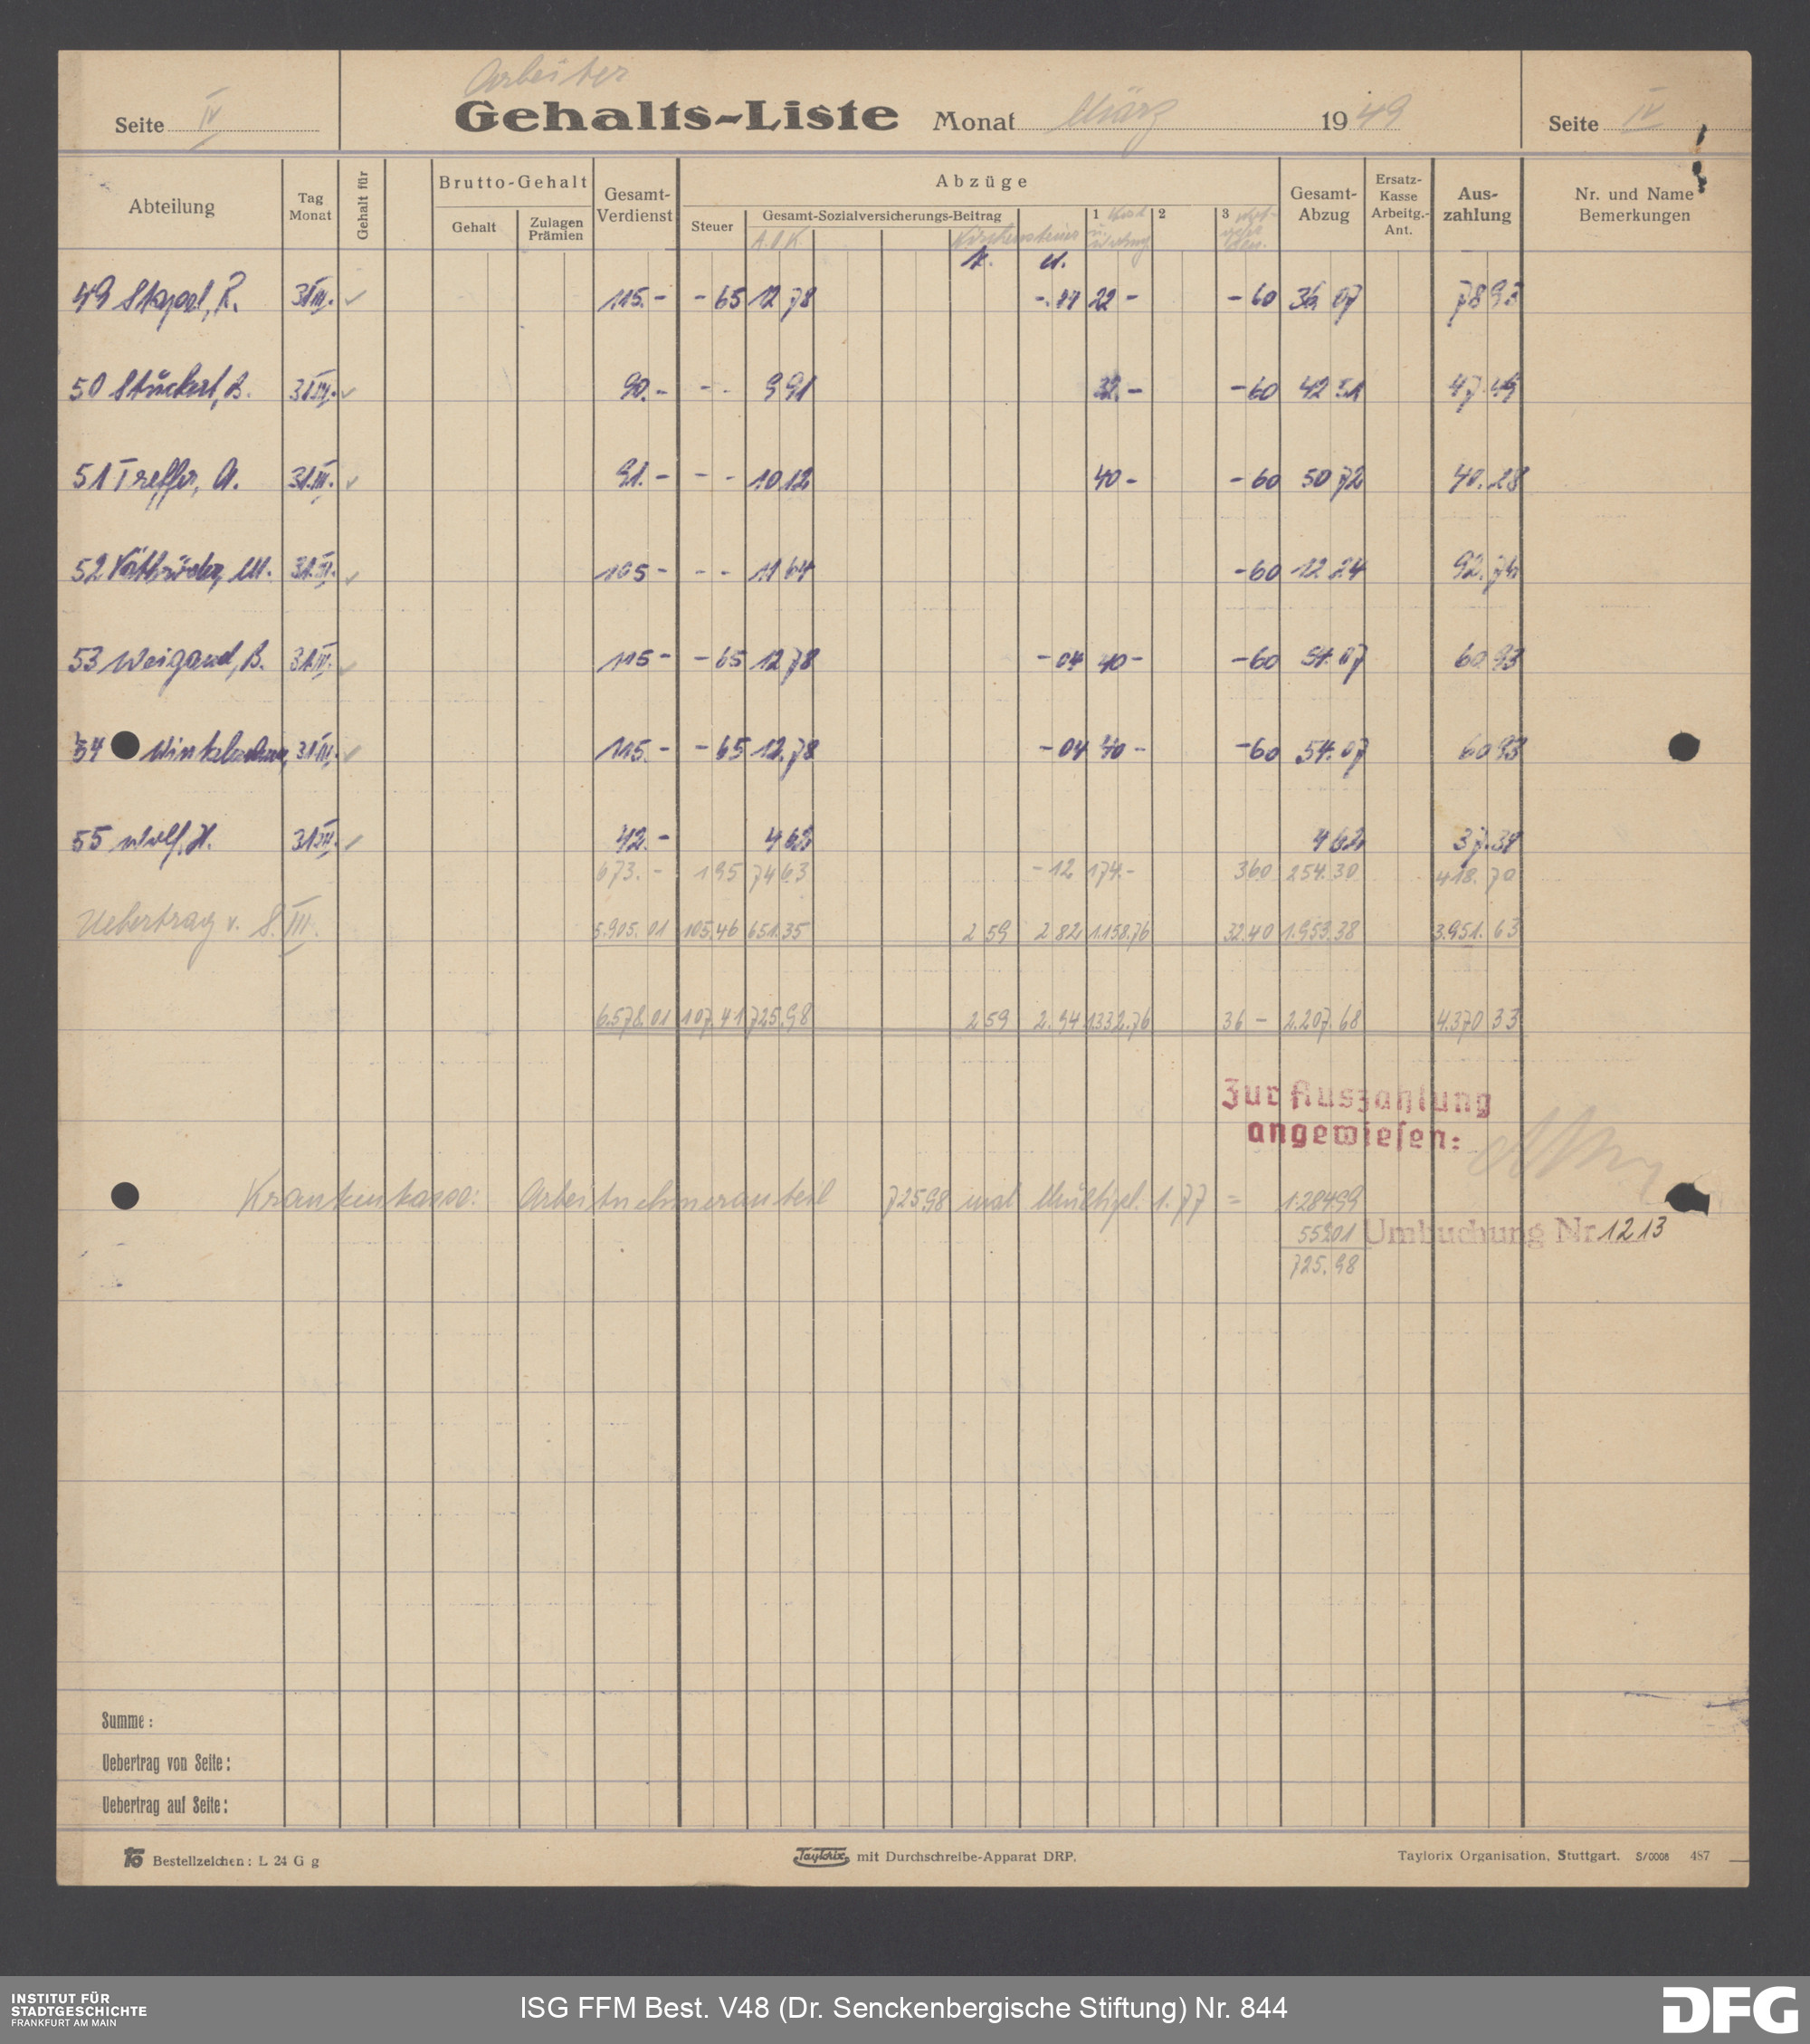 Arbeiter
Seite IV Gehalts-Liste Monat März 1949 Seite IV
Abteilung Tag Monat Gehalt für Brutto-Gehalt Gehalt Zulagen Prämien Gesamt-Verdienst Abzüge Steuer Gesamt-Sozialversicherungs-Beitrag A.O.K. Kirchensteuer k. ev. 1 Kost u. Wohng 2 3 Gesamt-Abzug Ersatz-Kasse Arbeitg.-Ant. Aus-zahlung Nr. und Name Bemerkungen
49 31.III. ✓ 115.- -65 12 78 -.04 22 - -60 36 07 78 93
50 Stuckert, B. 31.III. ✓ 90.- - - 9 91 32.- -60 42 51 47.49
51 Treffer, A. 31.III. ✓ 91.- - - 10 12 40 - -60 50 72 40.28
52 M. 31.III. ✓ 105 - - - 11 64 -60 12 24 92.76
53 Weigand, B. 31.III. ✓ 115 - -65 12 78 -04 40 - -60 54.07 60 93
54 31.III. ✓ 115.- -65 12.78 -04 40 - -60 54.07 60 93
55 Wolf, H. 31.III. ✓ 42.- 4 62 4 62 37.38
673.- 1 95 74 63 -12 174.- 3 60 254.30 418.70
Uebertrag v. S. III. 5.905.01 105.46 651.35 2 59 2 82 1.158.76 32.40 1.953.38 3.951.63
6.578.01 107.41 725.98 2 59 2.94 1332.76 36 - 2.207.68 4.370 33
Zur Auszahlung
angewiesen:
Krankenkasse: Arbeitnehmeranteil 725.98 mal Multipl. 1.77 = 1.284.99
552.01 Umbuchung Nr. 1213
725.98
Summe:
Uebertrag von Seite:
Uebertrag auf Seite:
Bestellzeichen: L 24 G g Taylorix mit Durchschreibe-Apparat DRP. Taylorix Organisation, Stuttgart. S/0006 487
INSTITUT FÜR
STADTGESCHICHTE
FRANKFURT AM MAIN
ISG FFM Best. V48 (Dr. Senckenbergische Stiftung) Nr. 844
DFG